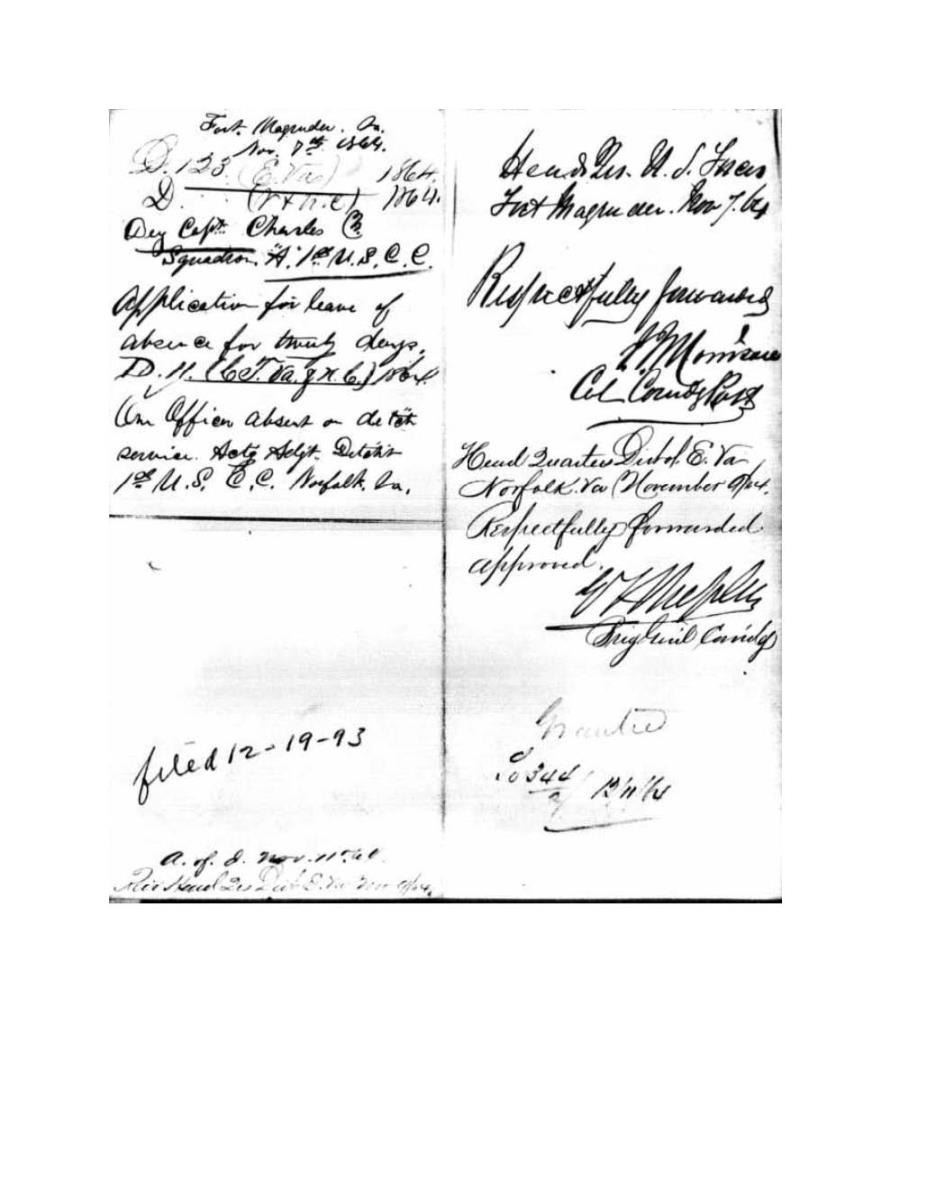 Fort Magruder. Va.
Nov. 7th 1864.
D. 123. (E. Va) 1864.
D. (V & N.C) 1864.
Dey Capt. Charles C.
Squadron "A" 1st U.S.C.C.
Application for leave of
absence for twenty days.
D. H. (Va. & N.C.) 1864.
One Officer absent on detch
service. Actg Adjt. Detch't
1st U.S. C.C. Norfolk. Va.
filed 12-19-93
A. of J. Nov. 11th 64.
Rec Head Qrs Dist E. Va Nov 9/64.
Head Qrs. U.S. Forces
Fort Magruder. Nov 7. 64
Respectfully forwarded
Col Comdg Post
Head Quarters Dist of E. Va
Norfolk. Va November 9/64.
Respectfully forwarded
approved.
Brig Genl Comdg
Granted
So 344